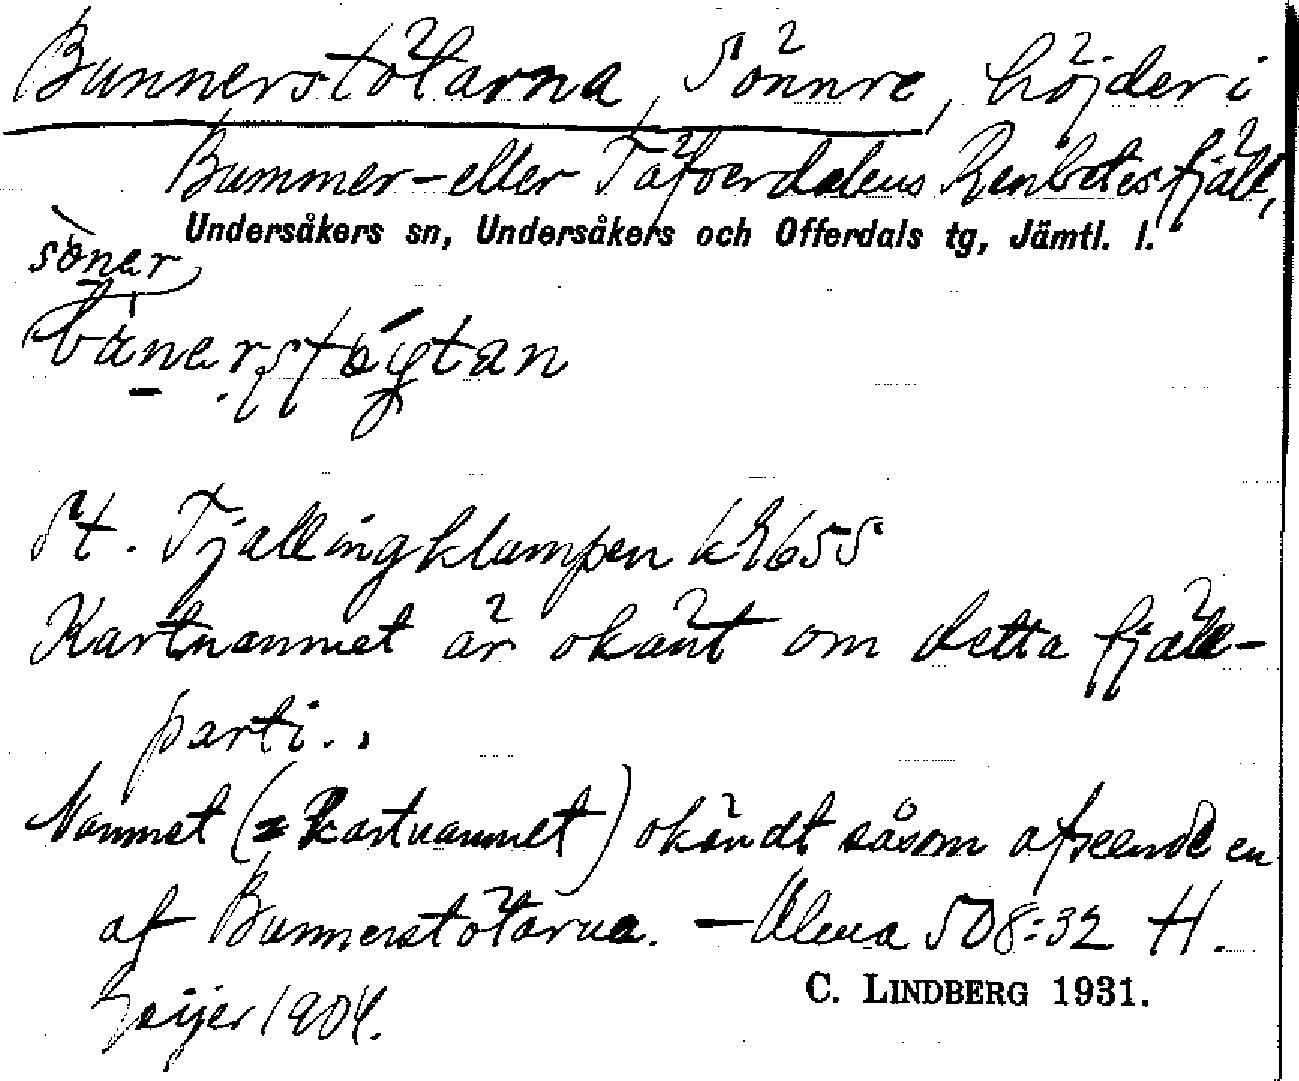 Bunnerstötarna, Sönnre, höjder i
Bummer- eller Täfverdalens Renbetesfjäll,
Undersåkers sn, Undersåkers och Offerdals tg, Jämtl. l.
söner
St. Tjallingklumpen
Kartnamnet är okänt om detta fjäll-
parti.
Namnet (= Kartnamnet) okändt såsom afseende en
af Bunnerstötarna. — Ulma 508:32 H.
Geijer 1904.
C. LINDBERG 1931.